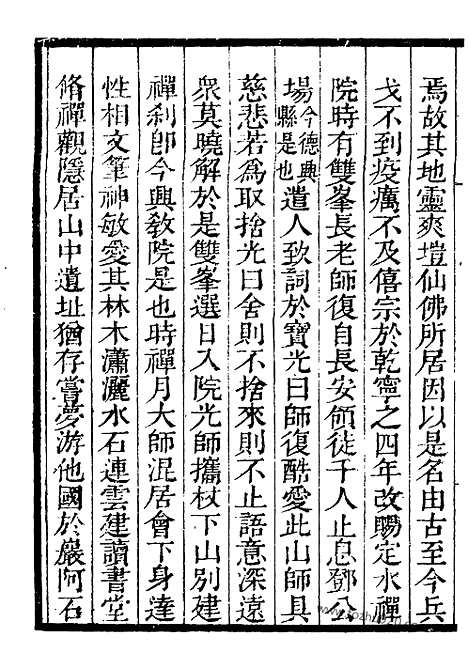 焉故其地靈爽塏仙佛所居因以是名由古至今兵
戈不到疫癘不及僖宗於乾寧之四年改賜定水禪
院時有雙峯長老師復自長安領徒千人止息鄧公
場今德興縣是也遣人致詞於寶光曰師復酷愛此山師具
慈悲若爲取捨光曰舍則不捨來則不止語意深遠
衆莫曉解於是雙峯選日入院光師攜杖下山别建
禪刹卽今興敎院是也時禪月大師混居會下身達
性相文筆神敏愛其林木瀟灑水石連雲建讀書堂
脩禪觀隱居山中遺址猶存嘗夢游他國於巖阿石